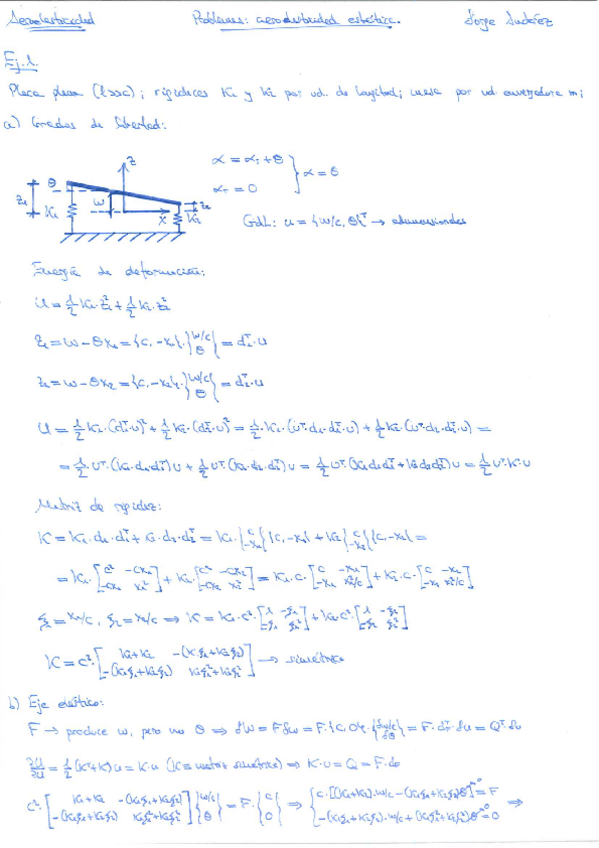 Aeroelasticidad Problemas: aeroelasticidad estática. Jorge Suárez
Ej.1.
Placa plana (l>>c); rigideces K₁ y K₂ por ud. de longitud; masa por ud. envergadura m;
a) Grados de libertad:
z
θ
w
z₁
K₁
x
z₂
K₂
α = αᵣ + θ
αᵣ = 0
α = θ
GdL: u = {w/c, θ}ᵀ → adimensionales
Energía de deformación:
U = 1/2 K₁·z₁² + 1/2 K₂·z₂²
z₁ = w − θx₁ = {c, −x₁}·{w/c θ} = d₁ᵀ·u
z₂ = w − θx₂ = {c, −x₂}·{w/c θ} = d₂ᵀ·u
U = 1/2 K₁·(d₁ᵀ·u)² + 1/2 K₂·(d₂ᵀ·u)² = 1/2·K₁·(uᵀ·d₁·d₁ᵀ·u) + 1/2 K₂·(uᵀ·d₂·d₂ᵀ·u) =
= 1/2 uᵀ·(K₁·d₁·d₁ᵀ)u + 1/2 uᵀ·(K₂·d₂·d₂ᵀ)u = 1/2 uᵀ·(K₁d₁d₁ᵀ + K₂d₂d₂ᵀ)u = 1/2 uᵀ·K·u
Matriz de rigidez:
K = K₁·d₁·d₁ᵀ + K₂·d₂·d₂ᵀ = K₁·{c −x₁}{c, −x₁} + K₂{c −x₂}{c, −x₂} =
= K₁·[c² −cx₁ −cx₁ x₁²] + K₂·[c² −cx₂ −cx₂ x₂²] = K₁·c·[c −x₁ −x₁ x₁²/c] + K₂·c·[c −x₂ −x₂ x₂²/c]
ξ₁ = x₁/c, ξ₂ = x₂/c ⇒ K = K₁·c²·[1 −ξ₁ −ξ₁ ξ₁²] + K₂·c²·[1 −ξ₂ −ξ₂ ξ₂²]
K = c²·[K₁+K₂ −(K₁ξ₁+K₂ξ₂) −(K₁ξ₁+K₂ξ₂) K₁ξ₁²+K₂ξ₂²] → simétrica
b) Eje elástico:
F → produce w, pero no θ ⇒ δW = Fδw = F·{c, 0}·{δw/c δθ} = F·dᵀ·δu = Qᵀ·δu
∂U/∂u = 1/2 (Kᵀ+K)u = K·u (K = matriz simétrica) ⇒ K·u = Q = F·d
c²·[K₁+K₂ −(K₁ξ₁+K₂ξ₂) −(K₁ξ₁+K₂ξ₂) K₁ξ₁²+K₂ξ₂²]{w/c θ} = F·{c 0} ⇒ {c·[(K₁+K₂)·w/c −(K₁ξ₁+K₂ξ₂)θ] = F −(K₁ξ₁+K₂ξ₂)·w/c + (K₁ξ₁²+K₂ξ₂²)θ = 0 ⇒